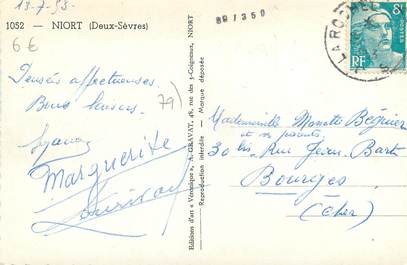 13-7-53-
1052 — NIORT (Deux-Sèvres)
6€
89/350
LAROCHE
8F
POSTES
RF
Pensées affectueuses.
Bons baisers
79)
Marguerite
Editions d'art « Véronique », A. GRAVAT, 48, rue des 3-Coigneaux, NIORT
Reproduction interdite — Marque déposée
Mademoiselle Monette Béguier
et ses parents,
30 bis Rue Jean Bart
Bourges
(Cher)